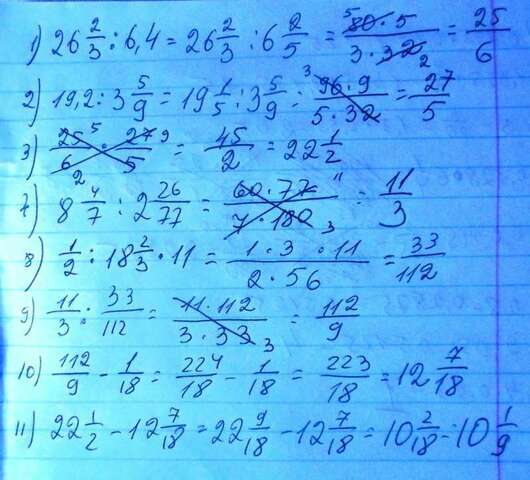 1) 26 2/3 : 6,4 = 26 2/3 : 6 2/5 = 80·5/3·32 = 25/6
2) 19,2 : 3 5/9 = 19 1/5 : 3 5/9 = 96·9/5·32 = 27/5
3) 25/6 · 27/5 = 45/2 = 22 1/2
7) 8 4/7 : 2 26/77 = 60·77/7·180 = 11/3
8) 1/2 : 18 2/3 · 11 = 1·3·11/2·56 = 33/112
9) 11/3 : 33/112 = 11·112/3·33 = 112/9
10) 112/9 - 1/18 = 224/18 - 1/18 = 223/18 = 12 7/18
11) 22 1/2 - 12 7/18 = 22 9/18 - 12 7/18 = 10 2/18 = 10 1/9